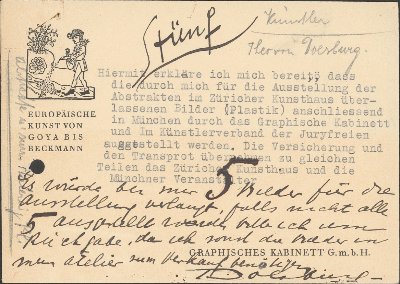 Fünf
Künstler
Theo van Doesburg.
EUROPÄISCHE
KUNST VON
GOYA BIS
BECKMANN
Hiermit erkläre ich mich bereit, dass
die durch mich für die Ausstellung der
Abstrakten im Züricher Kunsthaus über-
lassenen Bilder (Plastik) anschliessend
in München durch das Graphische Kabinett
und Im Künstlerverband der Juryfreien
auggestellt werden. Die Versicherung und
den Transprot übernehmen zu gleichen
Teilen das Züricher Kunsthaus und die
Münchner Veranstalter
Es wurde bei mir 5 Bilder für die
Ausstellung verlangt, falls nicht alle
5 ausgestellt werden bitte ich um
Rückgabe, da ich sonst die Bilder in
mein Atelier zum Verkauf benötige.
GRAPHISCHES KABINETT G.m.b.H.
Doesburg